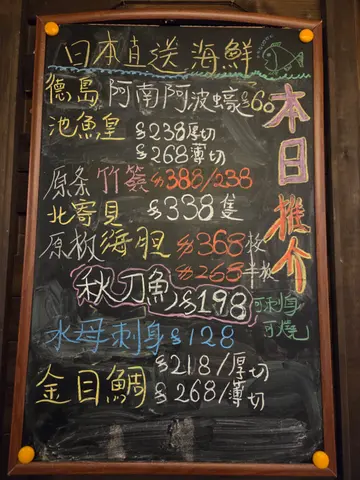 日本直送海鮮
本日推介
德島阿南阿波蠔$60
池魚皇 $238厚切
$268薄切
原条竹籤 $388/238
北寄貝 $338隻
原板海胆 $368板
$268半板
秋刀魚 $198 可刺身
可燒
水母刺身 $128
金目鯛 $218/厚切
$268/薄切